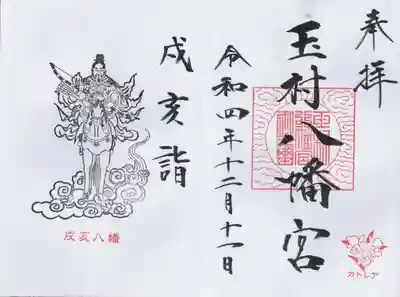 奉拝
玉村八幡宮
令和四年十二月十一日
戌亥詣
戌亥八幡
カトレア